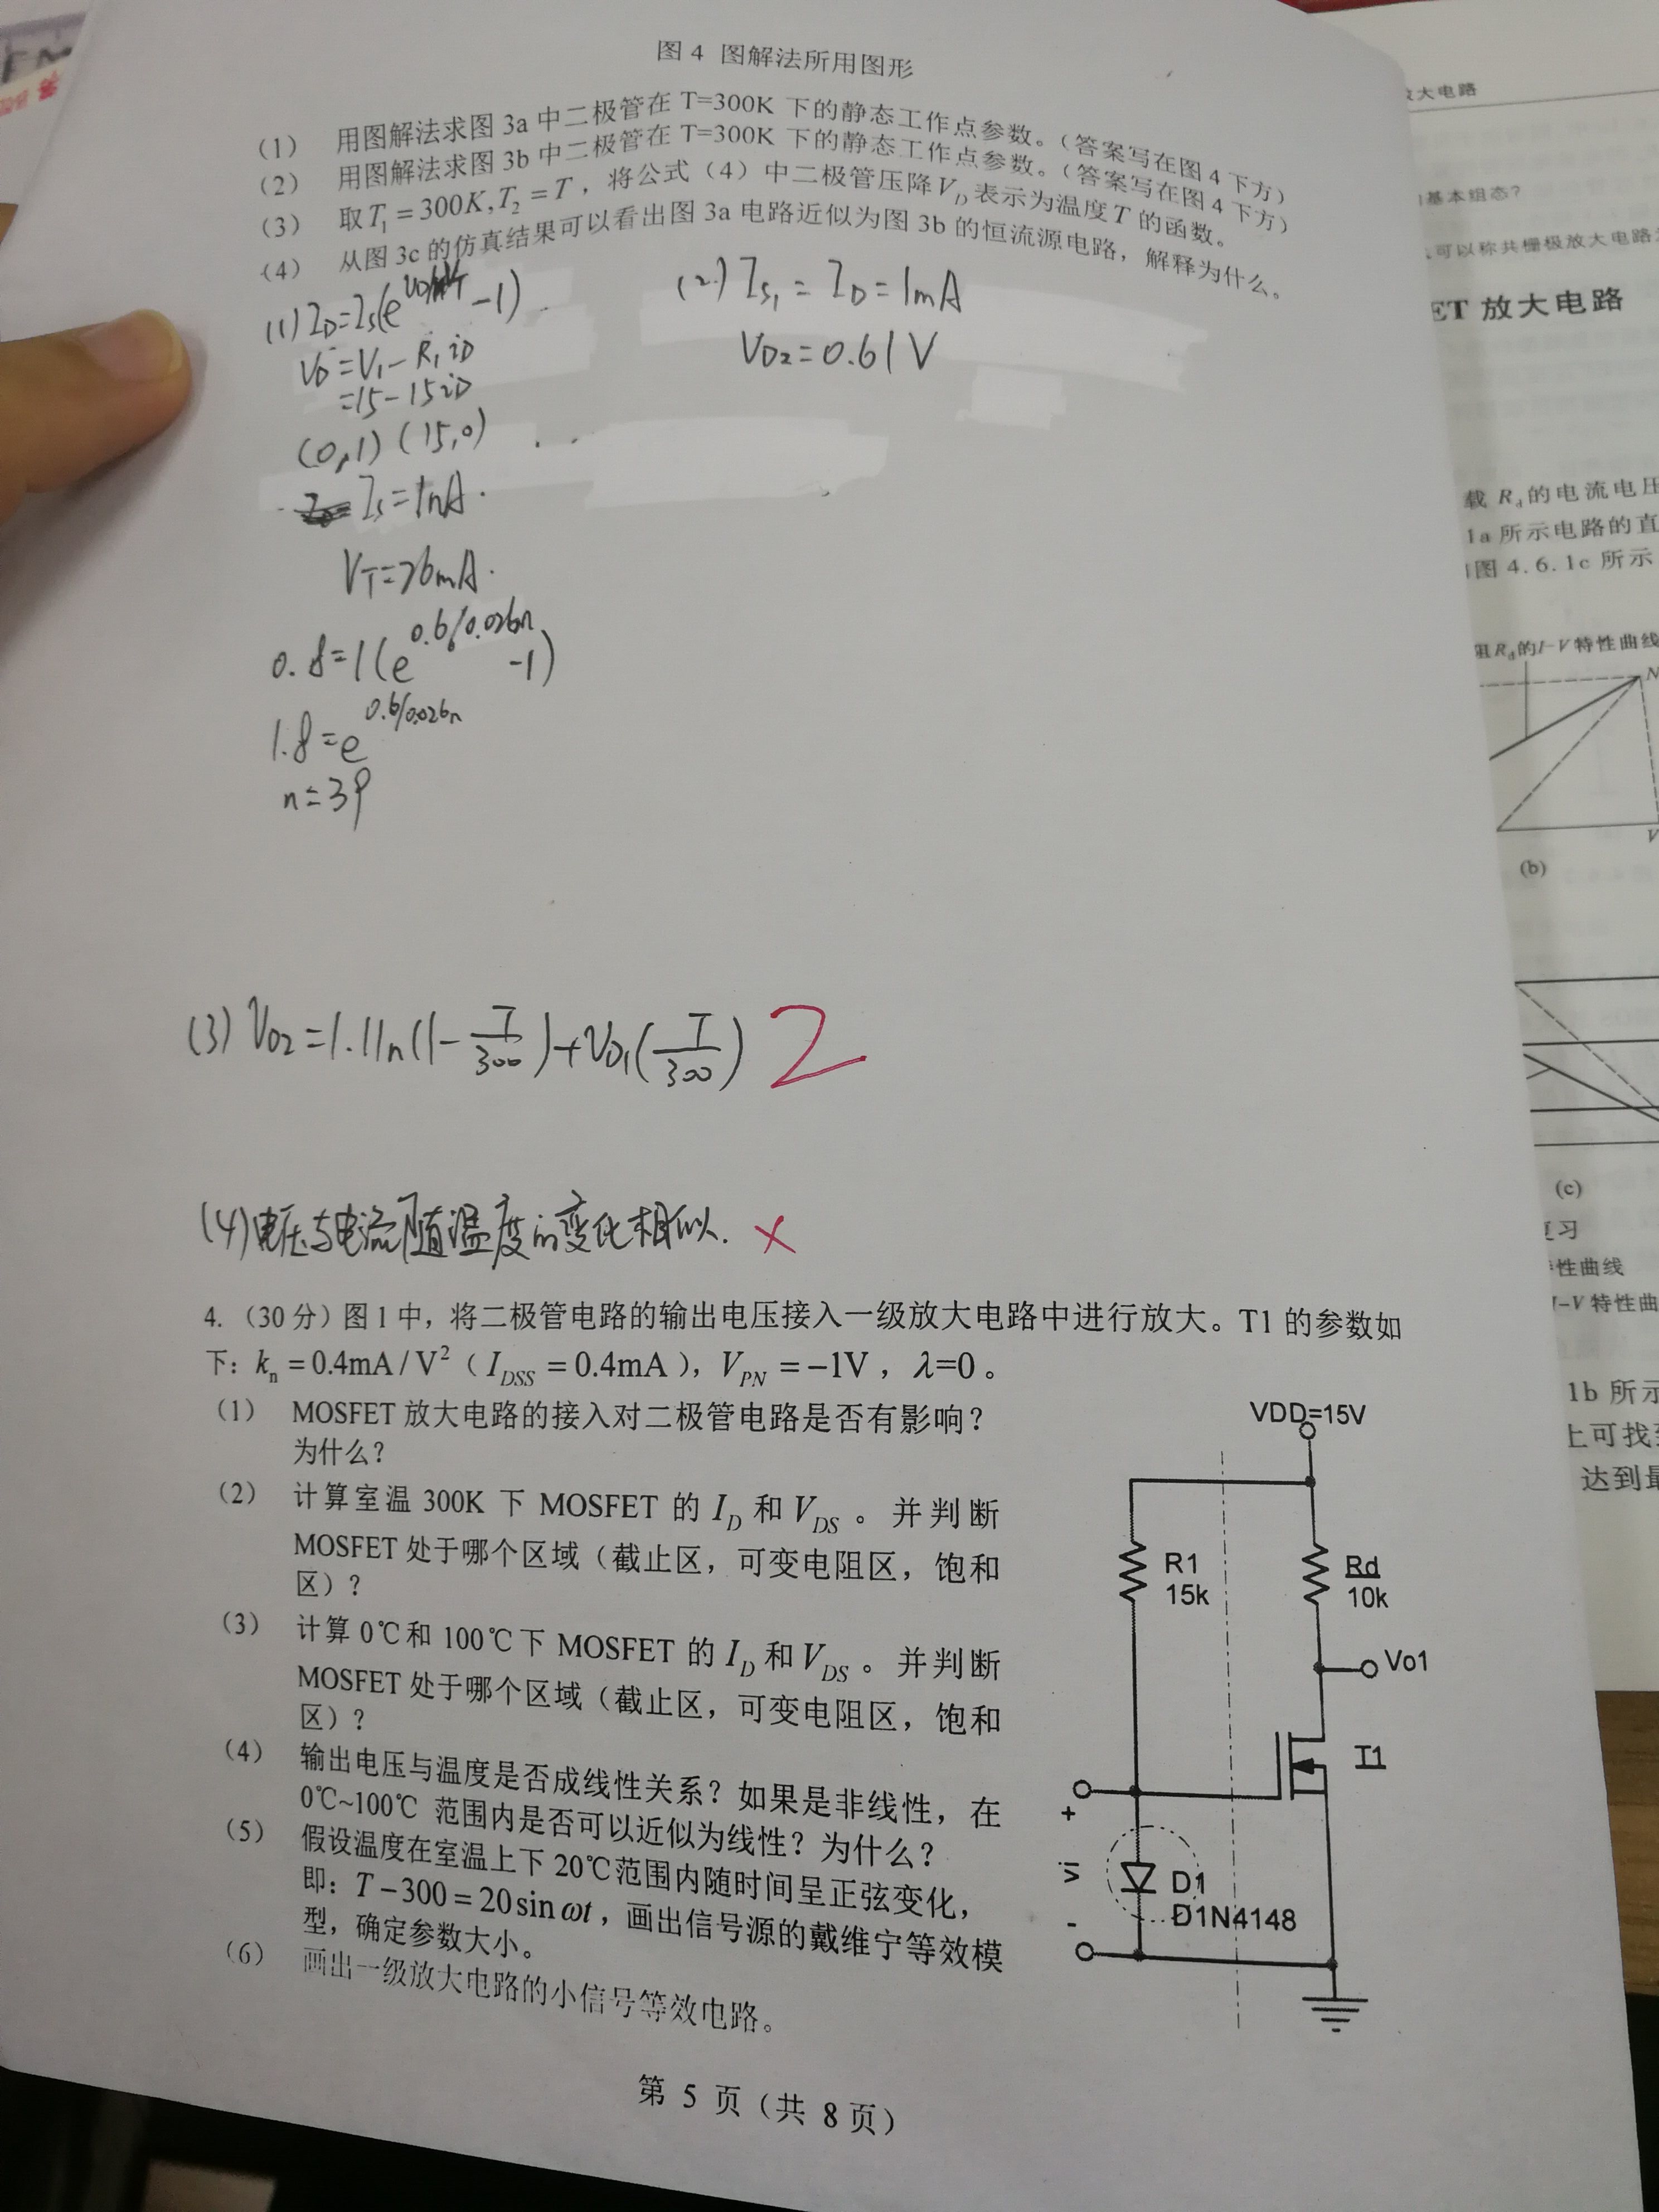 图 4 图解法所用图形
(1) 用图解法求图 3a 中二极管在 T=300K 下的静态工作点参数。（答案写在图 4 下方）
(2) 用图解法求图 3b 中二极管在 T=300K 下的静态工作点参数。（答案写在图 4 下方）
(3) 取 T₁ = 300K, T₂ = T，将公式（4）中二极管压降 V_D 表示为温度 T 的函数。
(4) 从图 3c 的仿真结果可以看出图 3a 电路近似为图 3b 的恒流源电路，解释为什么。
(1) I_D=I_S(e -1)
V_D=V₁-R₁i_D
=15-15i_D
(0,1) (15,0)
I_S=1nA.
V_T=26mA.
0.8=1(e^{0.6/0.026n} -1)
1.8=e^{0.6/0.026n}
n=39
(2) I_{S1} = I_D = 1mA
V_{D2}=0.61V
(3) V_{D2}=1.11n(1-T/300)+V_{D1}(T/300) 2
(4) 电压与电流随温度的变化相似. ×
4.（30 分）图 1 中，将二极管电路的输出电压接入一级放大电路中进行放大。T1 的参数如
下：k_n = 0.4mA / V²（I_{DSS} = 0.4mA），V_{PN} = −1V，λ=0。
(1) MOSFET 放大电路的接入对二极管电路是否有影响？
为什么？
(2) 计算室温 300K 下 MOSFET 的 I_D 和 V_{DS}。并判断
MOSFET 处于哪个区域（截止区，可变电阻区，饱和
区）？
(3) 计算 0℃和 100℃下 MOSFET 的 I_D 和 V_{DS}。并判断
MOSFET 处于哪个区域（截止区，可变电阻区，饱和
区）？
(4) 输出电压与温度是否成线性关系？如果是非线性，在
0℃~100℃ 范围内是否可以近似为线性？为什么？
(5) 假设温度在室温上下 20℃范围内随时间呈正弦变化，
即：T − 300 = 20 sin ωt，画出信号源的戴维宁等效模
型，确定参数大小。
(6) 画出一级放大电路的小信号等效电路。
VDD=15V
R1
15k
Rd
10k
Vo1
T1
+
vi
-
D1
D1N4148
第 5 页（共 8 页）
放大电路
基本组态？
可以称共栅极放大电路
ET 放大电路
载 R_d 的电流电压
1a 所示电路的直
图 4.6.1c 所示
阻R_d的I-V特性曲线
N
V
(b)
(c)
复习
性曲线
I-V 特性曲
1b 所示
上可找到
达到最